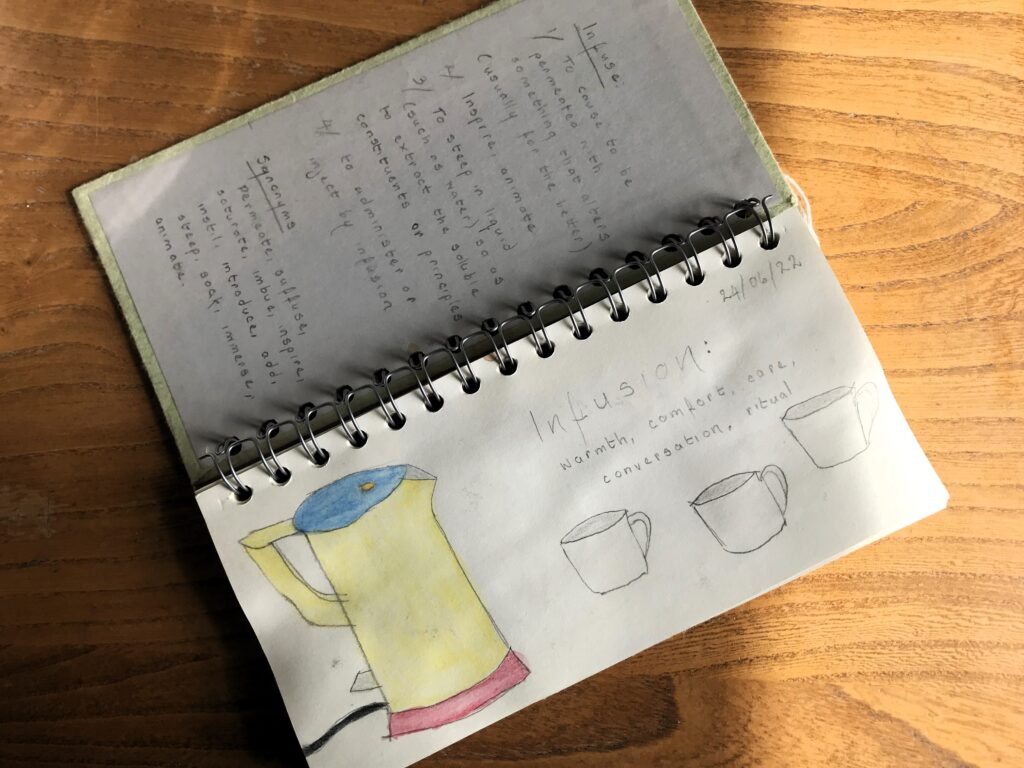 Infuse.
1/ To cause to be
permeated with
something that alters
(usually for the better)
2/ Inspire, animate
3/ To steep in liquid
(such as water) so as
to extract the soluble
constituents or principles
4/ to administer or
inject by infusion
Synonyms
permeate, suffuse,
saturate, imbue, inspire,
instil, introduce, add,
steep, soak, immerse,
animate.
24/06/22
Infusion:
warmth, comfort, care,
conversation, ritual